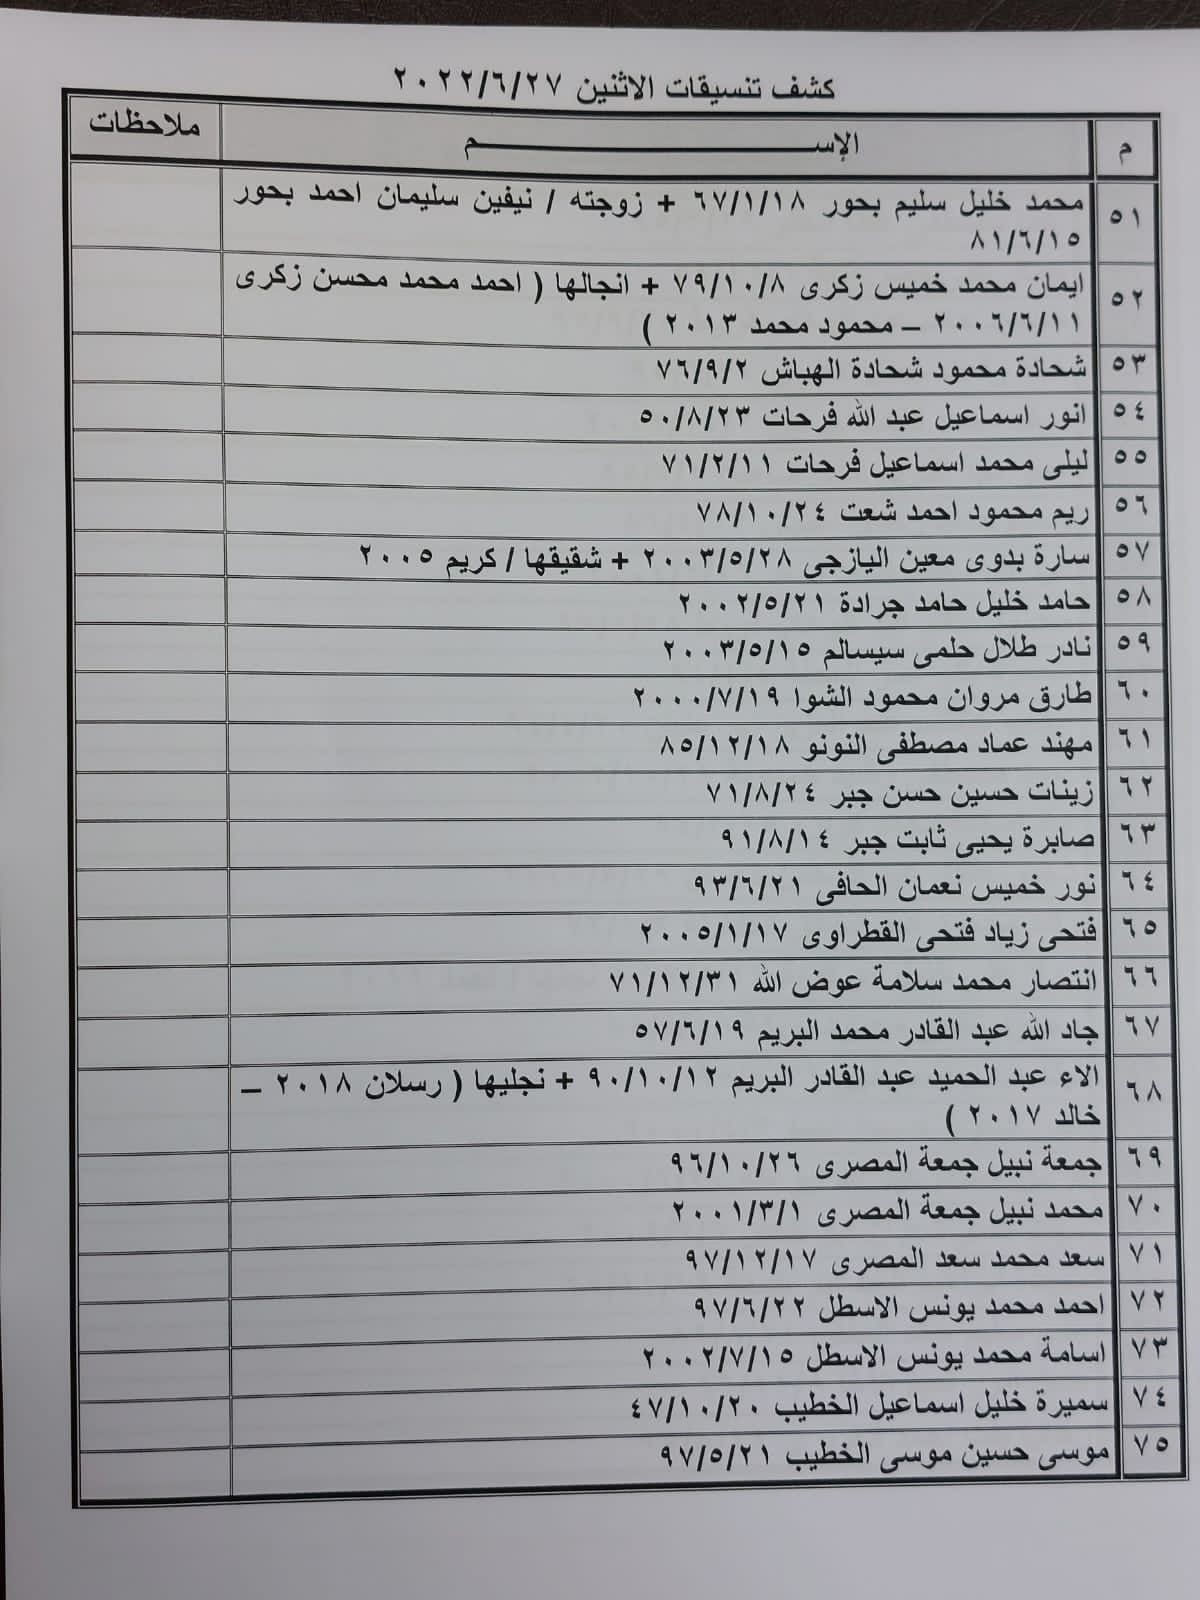 كشف تنسيقات الاثنين ٢٠٢٢/٦/٢٧
م الإســـــــــم ملاحظات
٥١ محمد خليل سليم بحور ٦٧/١/١٨ + زوجته / نيفين سليمان احمد بحور
٨١/٦/١٥
٥٢ ايمان محمد خميس زكرى ٧٩/١٠/٨ + انجالها ( احمد محمد محسن زكرى
٢٠٠٦/٦/١١ – محمود محمد ٢٠١٣ )
٥٣ شحادة محمود شحادة الهباش ٧٦/٩/٢
٥٤ انور اسماعيل عبد الله فرحات ٥٠/٨/٢٣
٥٥ ليلى محمد اسماعيل فرحات ٧١/٢/١١
٥٦ ريم محمود احمد شعت ٧٨/١٠/٢٤
٥٧ سارة بدوى معين اليازجى ٢٠٠٣/٥/٢٨ + شقيقها / كريم ٢٠٠٥
٥٨ حامد خليل حامد جرادة ٢٠٠٢/٥/٢١
٥٩ نادر طلال حلمى سيسالم ٢٠٠٣/٥/١٥
٦٠ طارق مروان محمود الشوا ٢٠٠٠/٧/١٩
٦١ مهند عماد مصطفى النونو ٨٥/١٢/١٨
٦٢ زينات حسين حسن جبر ٧١/٨/٢٤
٦٣ صابرة يحيى ثابت جبر ٩١/٨/١٤
٦٤ نور خميس نعمان الحافى ٩٣/٦/٢١
٦٥ فتحى زياد فتحى القطراوى ٢٠٠٥/١/١٧
٦٦ انتصار محمد سلامة عوض الله ٧١/١٢/٣١
٦٧ جاد الله عبد القادر محمد البريم ٥٧/٦/١٩
٦٨ الاء عبد الحميد عبد القادر البريم ٩٠/١٠/١٢ + نجليها ( رسلان ٢٠١٨ –
خالد ٢٠١٧ )
٦٩ جمعة نبيل جمعة المصرى ٩٦/١٠/٢٦
٧٠ محمد نبيل جمعة المصرى ٢٠٠١/٣/١
٧١ سعد محمد سعد المصرى ٩٧/١٢/١٧
٧٢ احمد محمد يونس الاسطل ٩٧/٦/٢٢
٧٣ اسامة محمد يونس الاسطل ٢٠٠٢/٧/١٥
٧٤ سميرة خليل اسماعيل الخطيب ٤٧/١٠/٢٠
٧٥ موسى حسين موسى الخطيب ٩٧/٥/٢١